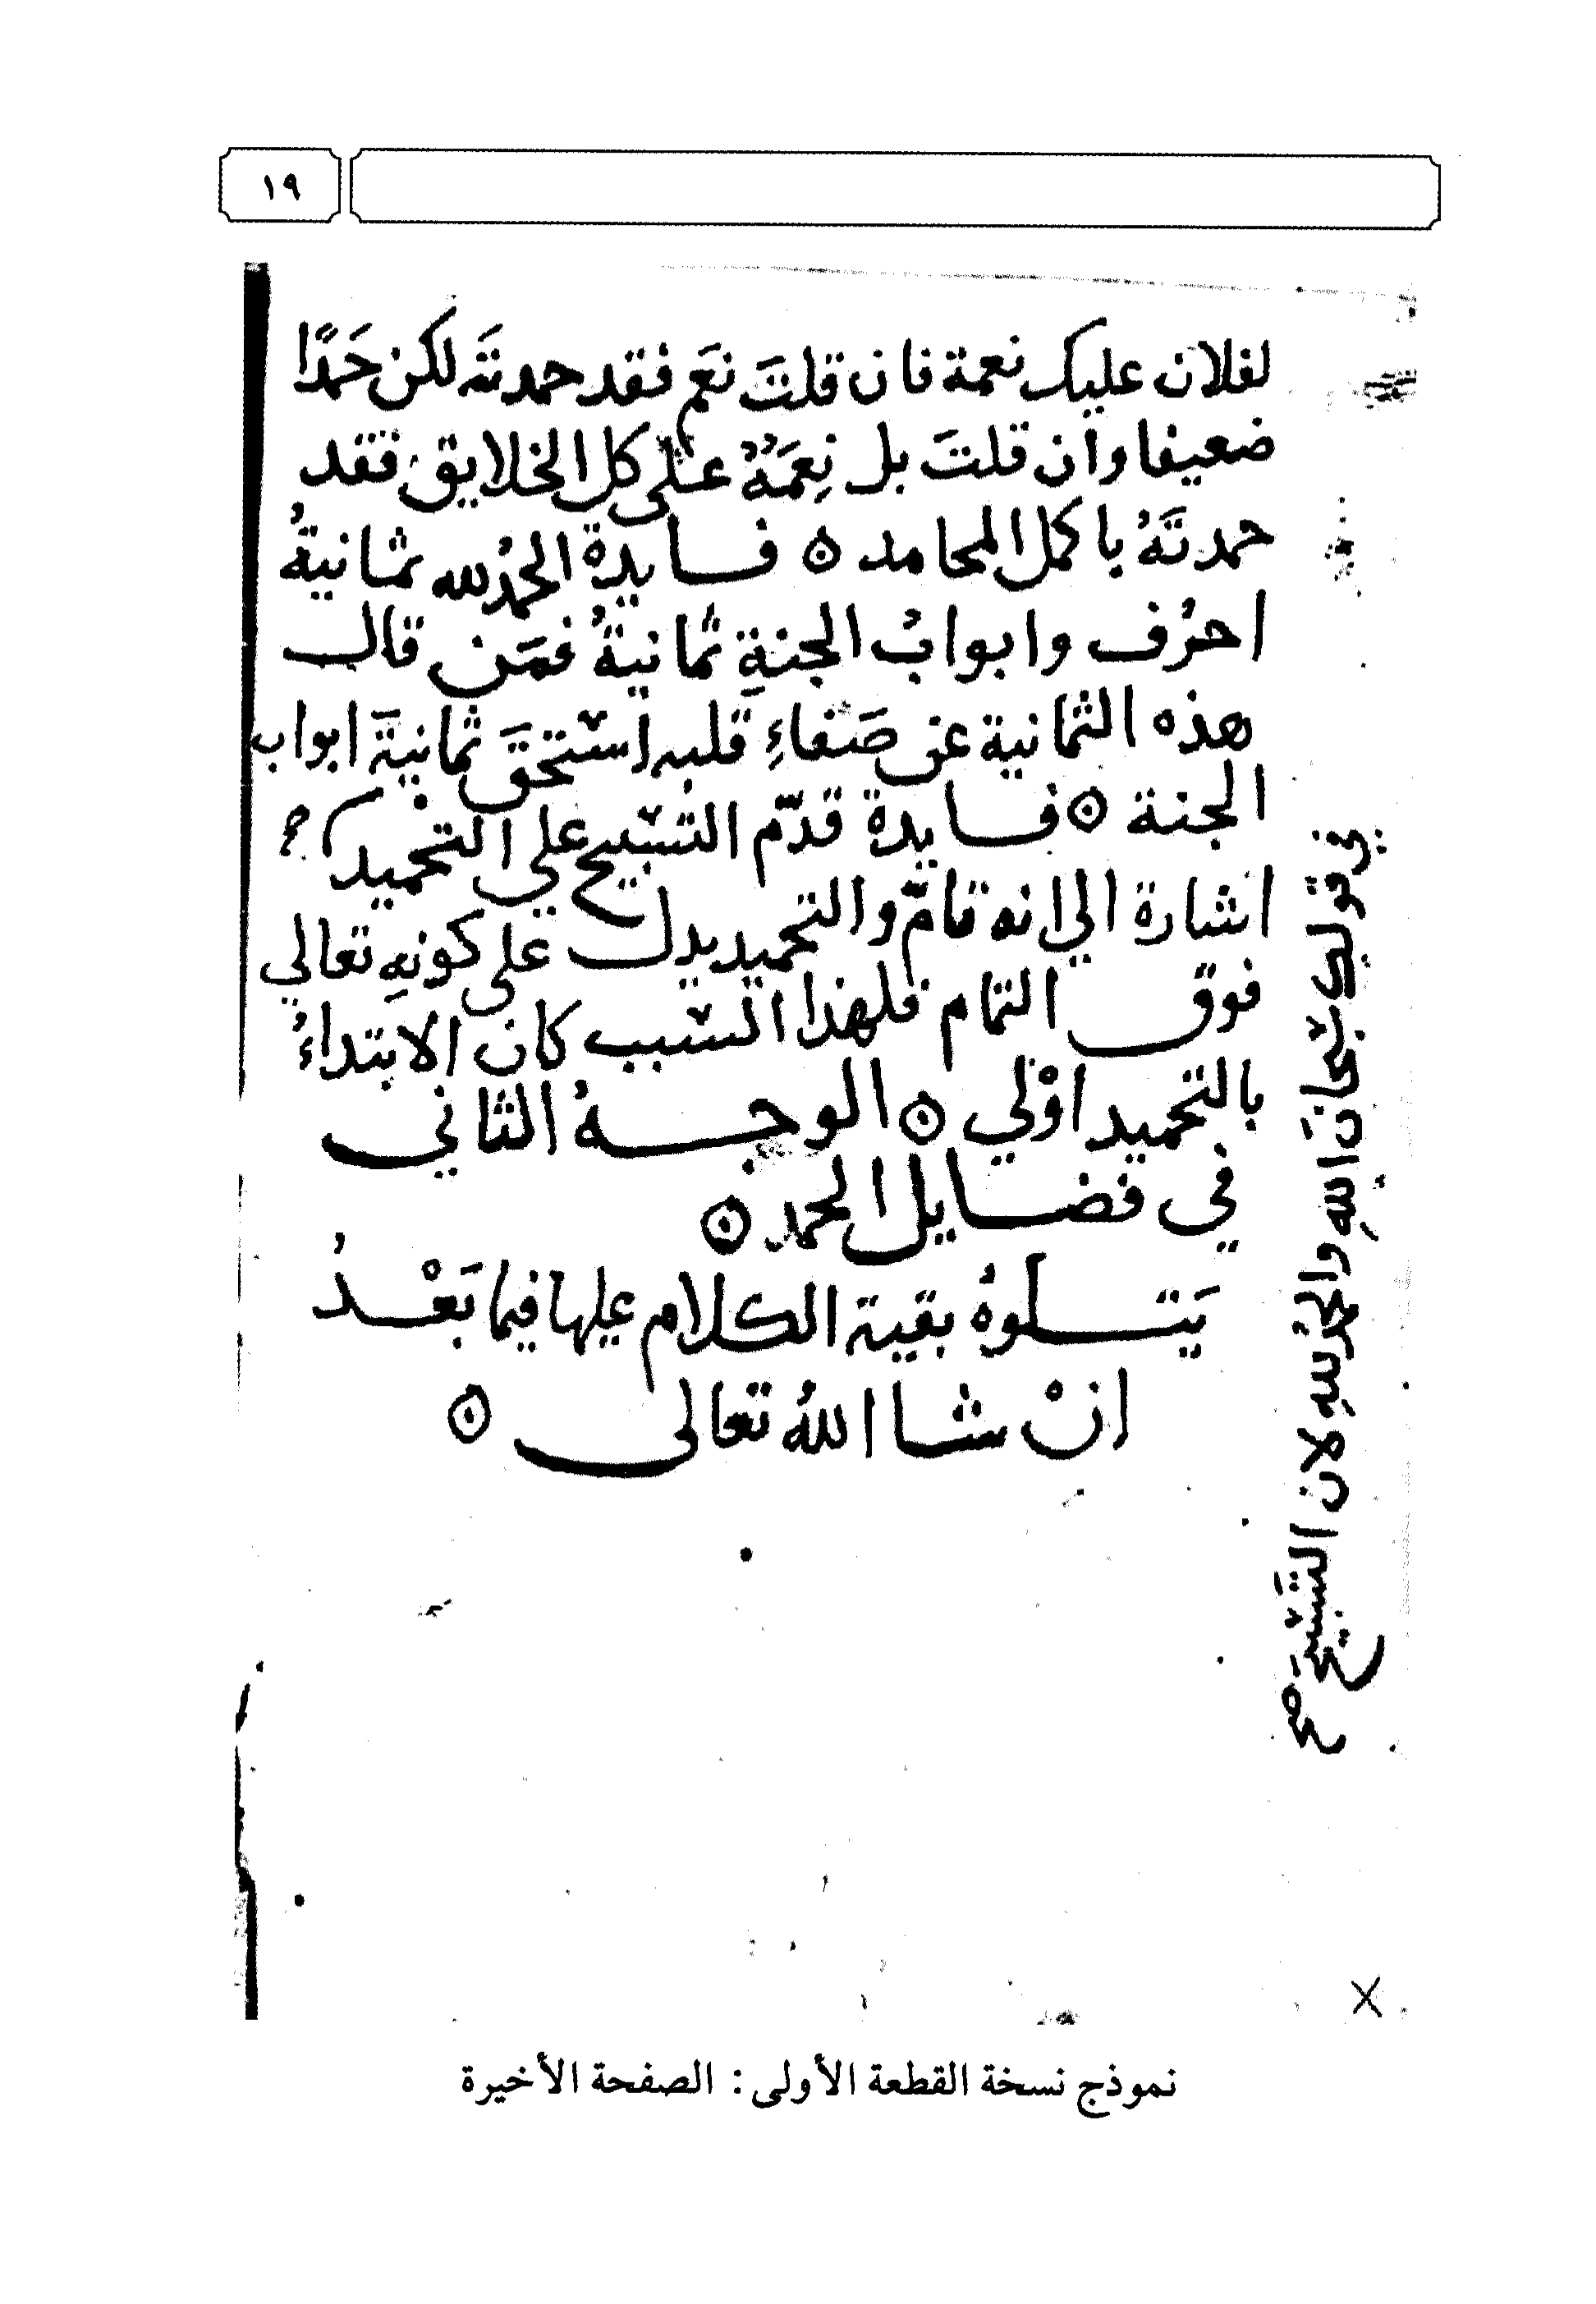 ١٩
لفلان عليك نعمة فان قلتَ نعَم فقد حمدتَه لكن حَمْدًا
ضعيفا وان قلتَ بل نِعَمُهُ على كل الخلايق فقد
حمدتَهُ باكمل المحامد ۞ فايدة الحمدُ لله ثمانيةُ
احرُف وابوابُ الجنةِ ثمانيةُ فمَن قال
هذه الثمانية عن صَفاءِ قلبه استحقَ ثمانيةَ ابواب
الجنة ۞ فايدة قدّم التسبيح علي التحميد
اشارة الي انه تامّ والتحميد يدل على كونِهِ تعالي
فوق التمام فلهذا السبب كان الابتداءُ
بالتحميد اوْلي ۞ الوجهُ الثاني
في فضايل الحمد ۞
يَتلوهُ بقية الكلام عليها فيما بَعْدُ
انْ شا اللهُ تعالى ۞
في قولك سبحانَ اللهِ والحمدُ للهِ لان التسبيحَ صح
نموذج نسخة القطعة الأولى : الصفحة الأخيرة